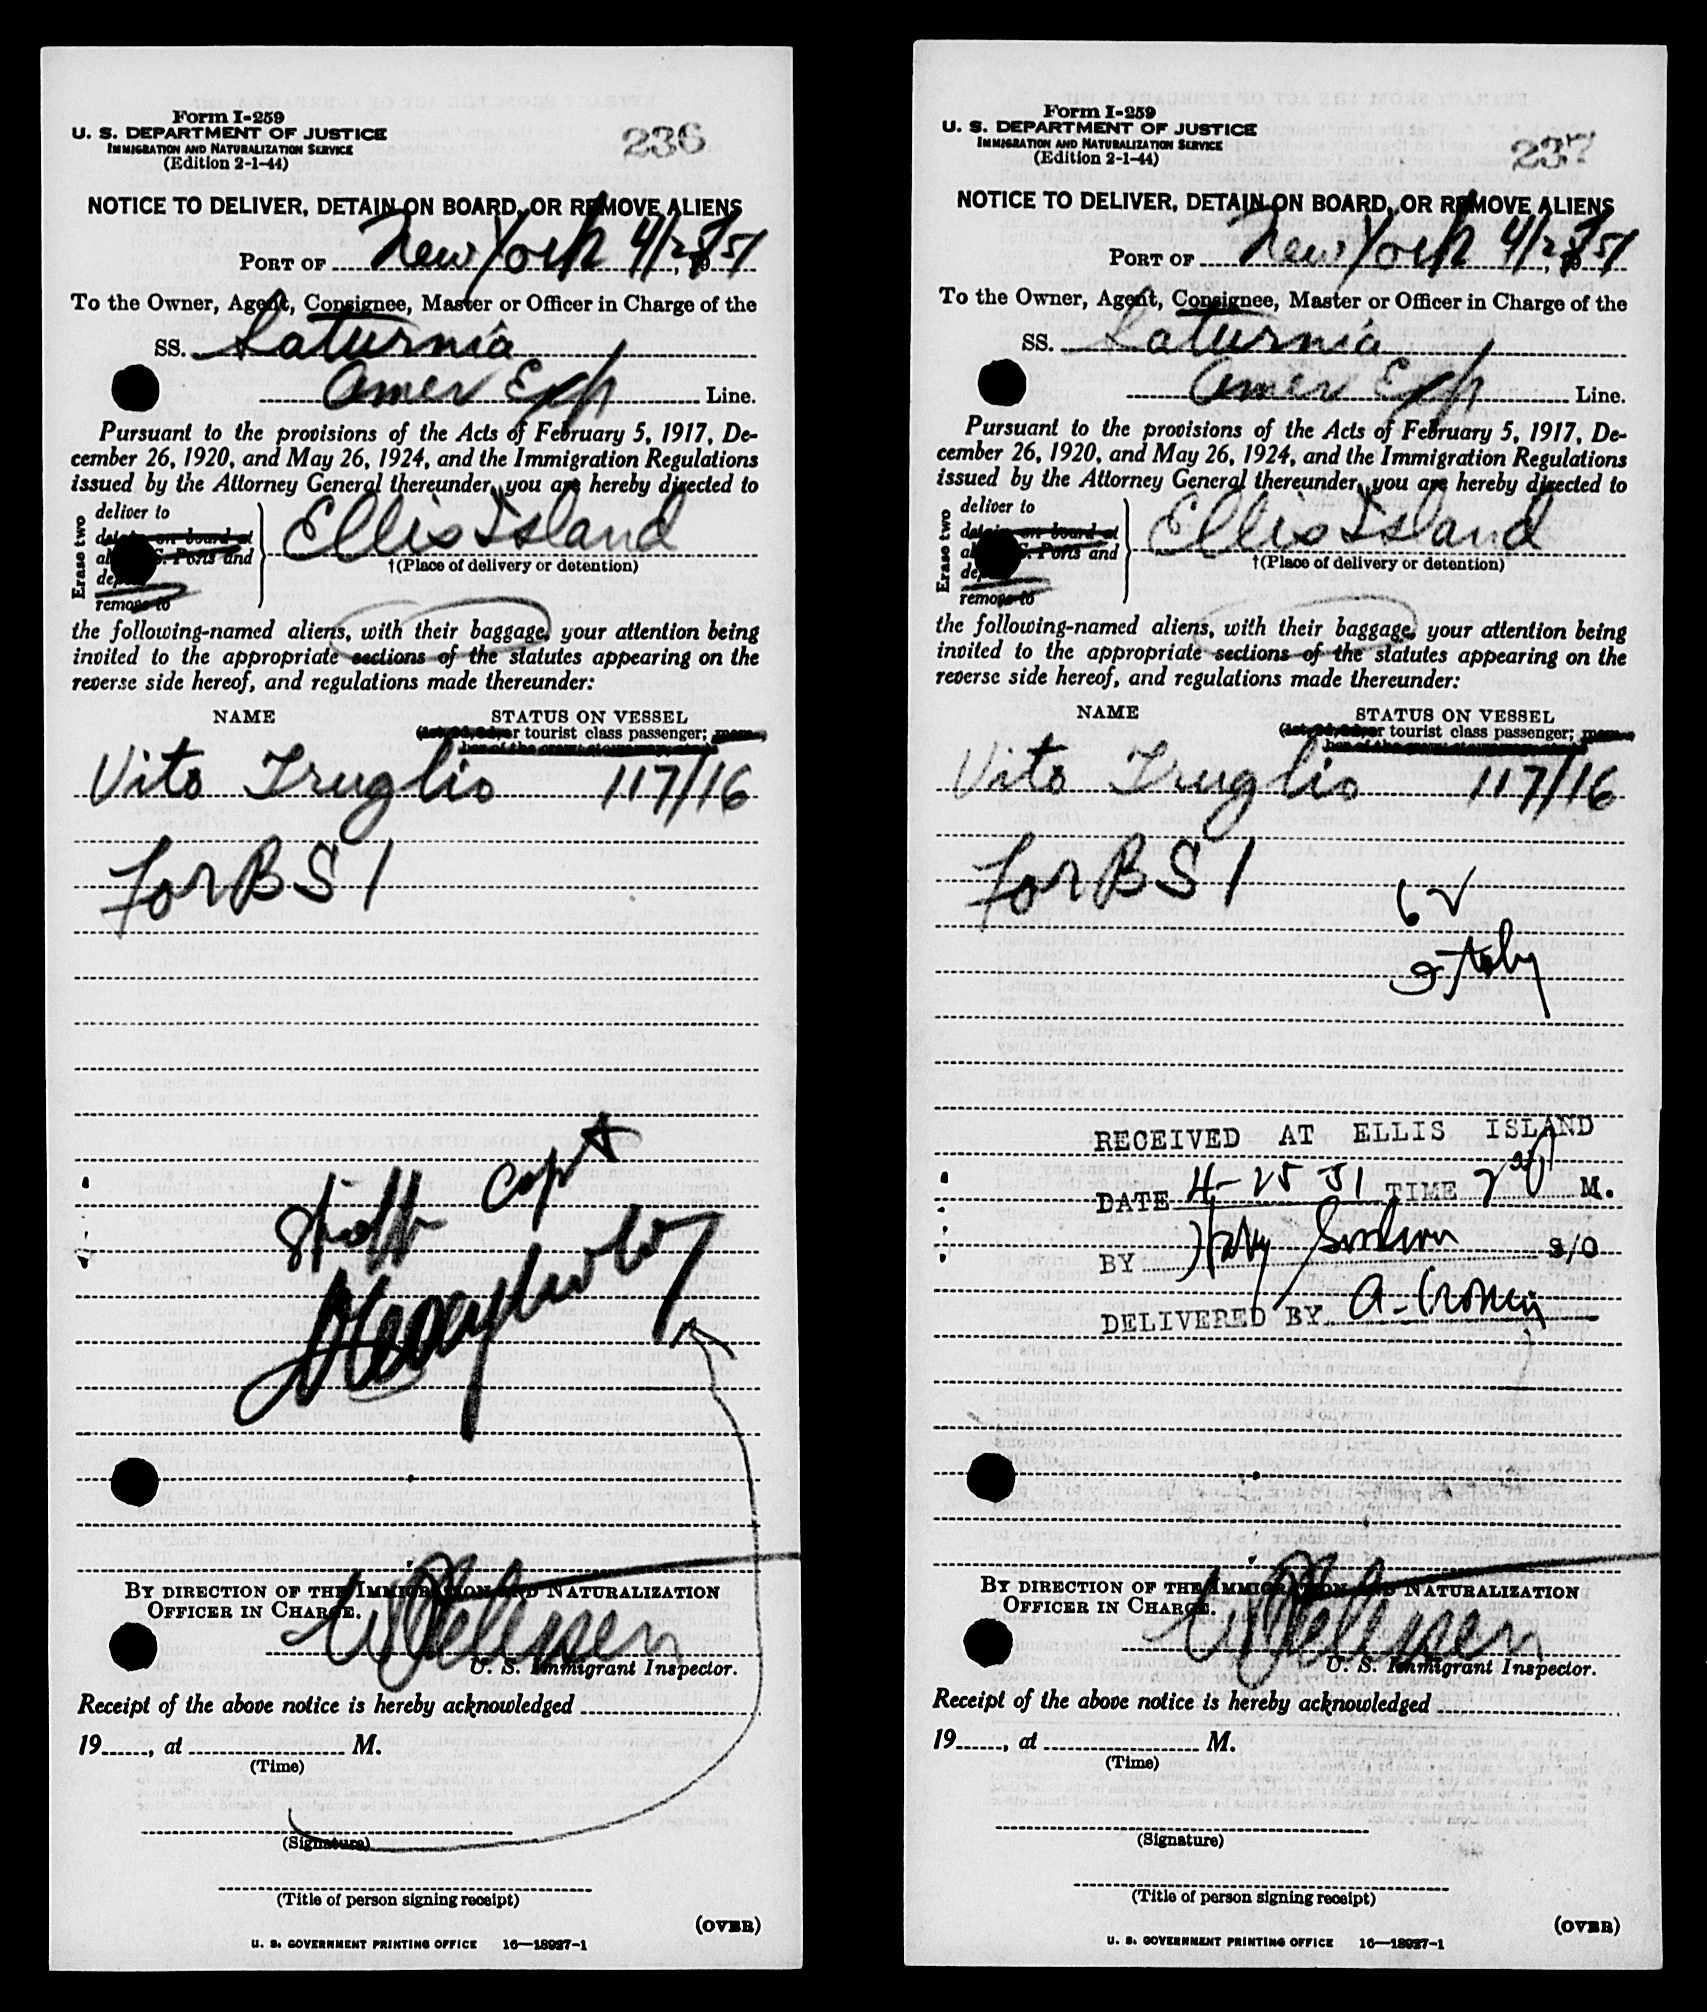 Form I-259
U. S. DEPARTMENT OF JUSTICE
IMMIGRATION AND NATURALIZATION SERVICE
(Edition 2-1-44)
236
NOTICE TO DELIVER, DETAIN ON BOARD, OR REMOVE ALIENS
PORT OF New York 4/25, 1951
To the Owner, Agent, Consignee, Master or Officer in Charge of the
SS. Saturnia
Amer Exp Line.
Pursuant to the provisions of the Acts of February 5, 1917, De-
cember 26, 1920, and May 26, 1924, and the Immigration Regulations
issued by the Attorney General thereunder, you are hereby directed to
Erase two
deliver to
detain on board at
G. Ports and
remove to
Ellis Island
†(Place of delivery or detention)
the following-named aliens, with their baggage, your attention being
invited to the appropriate sections of the statutes appearing on the
reverse side hereof, and regulations made thereunder:
NAME STATUS ON VESSEL
or tourist class passenger;
Vito Truglio 117/16
For BS I
Capt
BY DIRECTION OF THE IMMIGRATION AND NATURALIZATION
OFFICER IN CHARGE.
U. S. Immigrant Inspector.
Receipt of the above notice is hereby acknowledged
19, at M.
(Time)
(Signature)
(Title of person signing receipt)
(OVER)
U. S. GOVERNMENT PRINTING OFFICE 16—18927-1
Form I-259
U. S. DEPARTMENT OF JUSTICE
IMMIGRATION AND NATURALIZATION SERVICE
(Edition 2-1-44)
237
NOTICE TO DELIVER, DETAIN ON BOARD, OR REMOVE ALIENS
PORT OF New York 4/25, 1951
To the Owner, Agent, Consignee, Master or Officer in Charge of the
SS. Saturnia
Amer Exp Line.
Pursuant to the provisions of the Acts of February 5, 1917, De-
cember 26, 1920, and May 26, 1924, and the Immigration Regulations
issued by the Attorney General thereunder, you are hereby directed to
Erase two
deliver to
detain on board at
G. Ports and
remove to
Ellis Island
†(Place of delivery or detention)
the following-named aliens, with their baggage, your attention being
invited to the appropriate sections of the statutes appearing on the
reverse side hereof, and regulations made thereunder:
NAME STATUS ON VESSEL
or tourist class passenger;
Vito Truglio 117/16
For BS I
Italy
RECEIVED AT ELLIS ISLAND
DATE 4-25 51 TIME M.
BY Harry S/O
DELIVERED BY A. Cronin
BY DIRECTION OF THE IMMIGRATION AND NATURALIZATION
OFFICER IN CHARGE.
U. S. Immigrant Inspector.
Receipt of the above notice is hereby acknowledged
19, at M.
(Time)
(Signature)
(Title of person signing receipt)
(OVER)
U. S. GOVERNMENT PRINTING OFFICE 16—18927-1